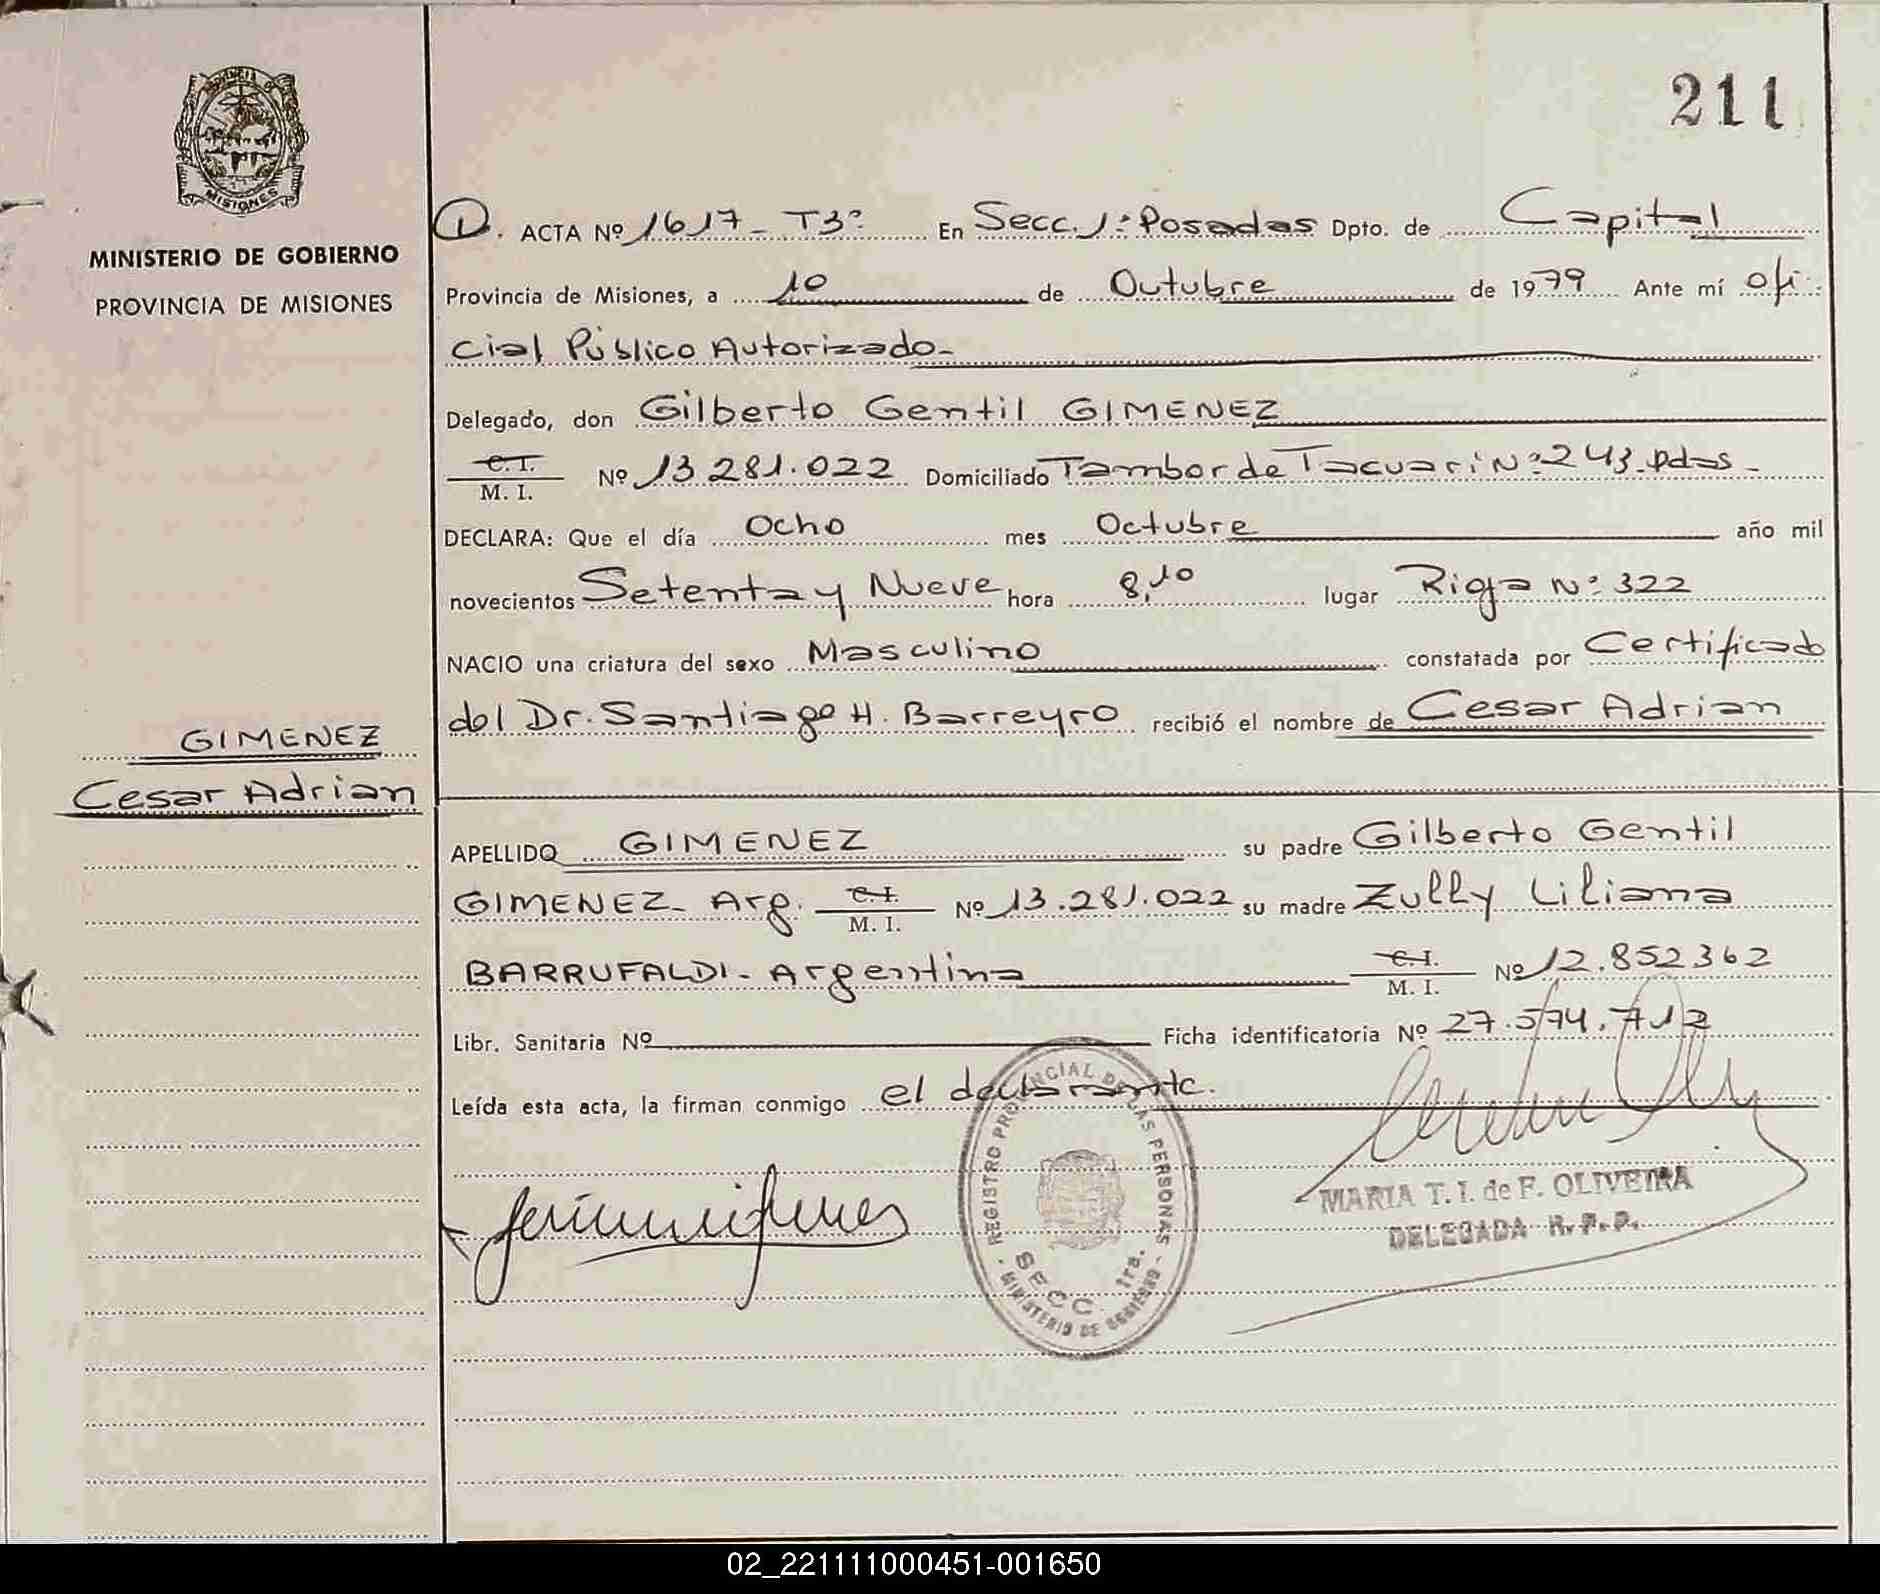 PROVINCIA DE
MISIONES
MINISTERIO DE GOBIERNO
PROVINCIA DE MISIONES
GIMENEZ
Cesar Adrian
211
D. ACTA Nº 1617 - T3º En Secc. 1ª Posadas Dpto. de Capital
Provincia de Misiones, a 10 de Octubre de 1979 Ante mí ofi-
cial Público Autorizado-
Delegado, don Gilberto Gentil GIMENEZ
C.I. M. I. Nº 13.281.022 Domiciliado Tambor de Tacuari Nº 243. Pdas -
DECLARA: Que el día Ocho mes Octubre año mil
novecientos Setenta y Nueve hora 8,10 lugar Rioja Nº 322
NACIO una criatura del sexo Masculino constatada por Certificado
del Dr. Santiago H. Barreyro recibió el nombre de Cesar Adrian
APELLIDO GIMENEZ su padre Gilberto Gentil
GIMENEZ- Arg. C.I. M. I. Nº 13.281.022 su madre Zully Liliana
BARRUFALDI- Argentina C.I. M. I. Nº 12.852362
Libr. Sanitaria Nº Ficha identificatoria Nº 27.574.712
Leída esta acta, la firman conmigo el declarante.
REGISTRO PROVINCIAL DE LAS PERSONAS
SECC. 1ra.
- MINISTERIO DE GOBIERNO -
MARIA T. I. de F. OLIVEIRA
DELEGADA R. P. P.
02_221111000451-001650